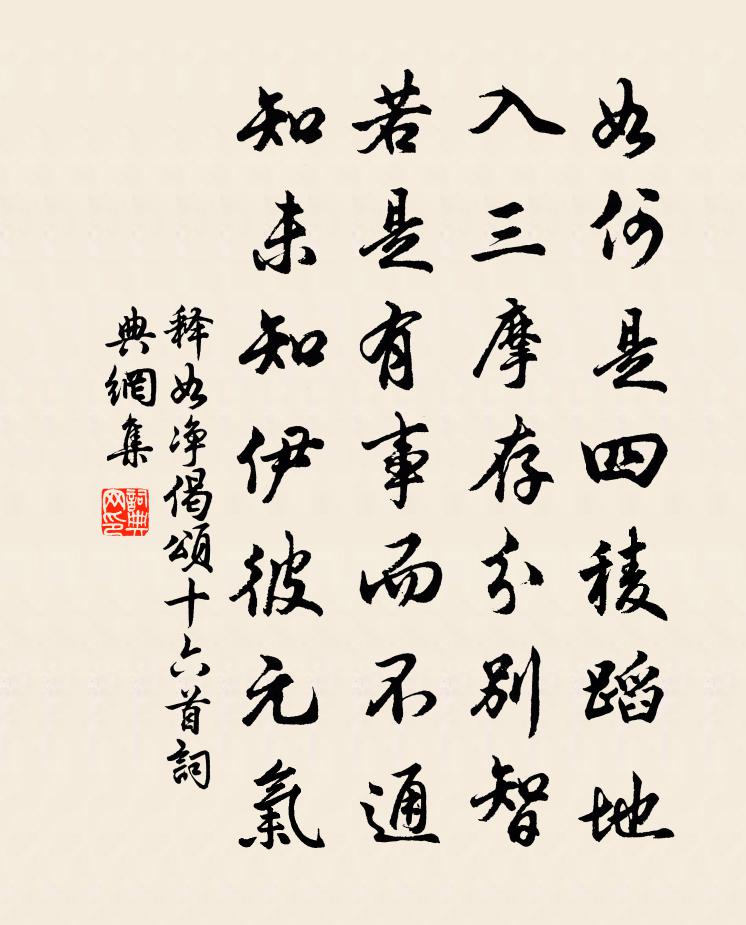 如何是四稜蹈地
入三摩存分別智
若是有事而不通
知未知伊彼元氣
释如净偈頌十六首詞
典網集
詞典网印